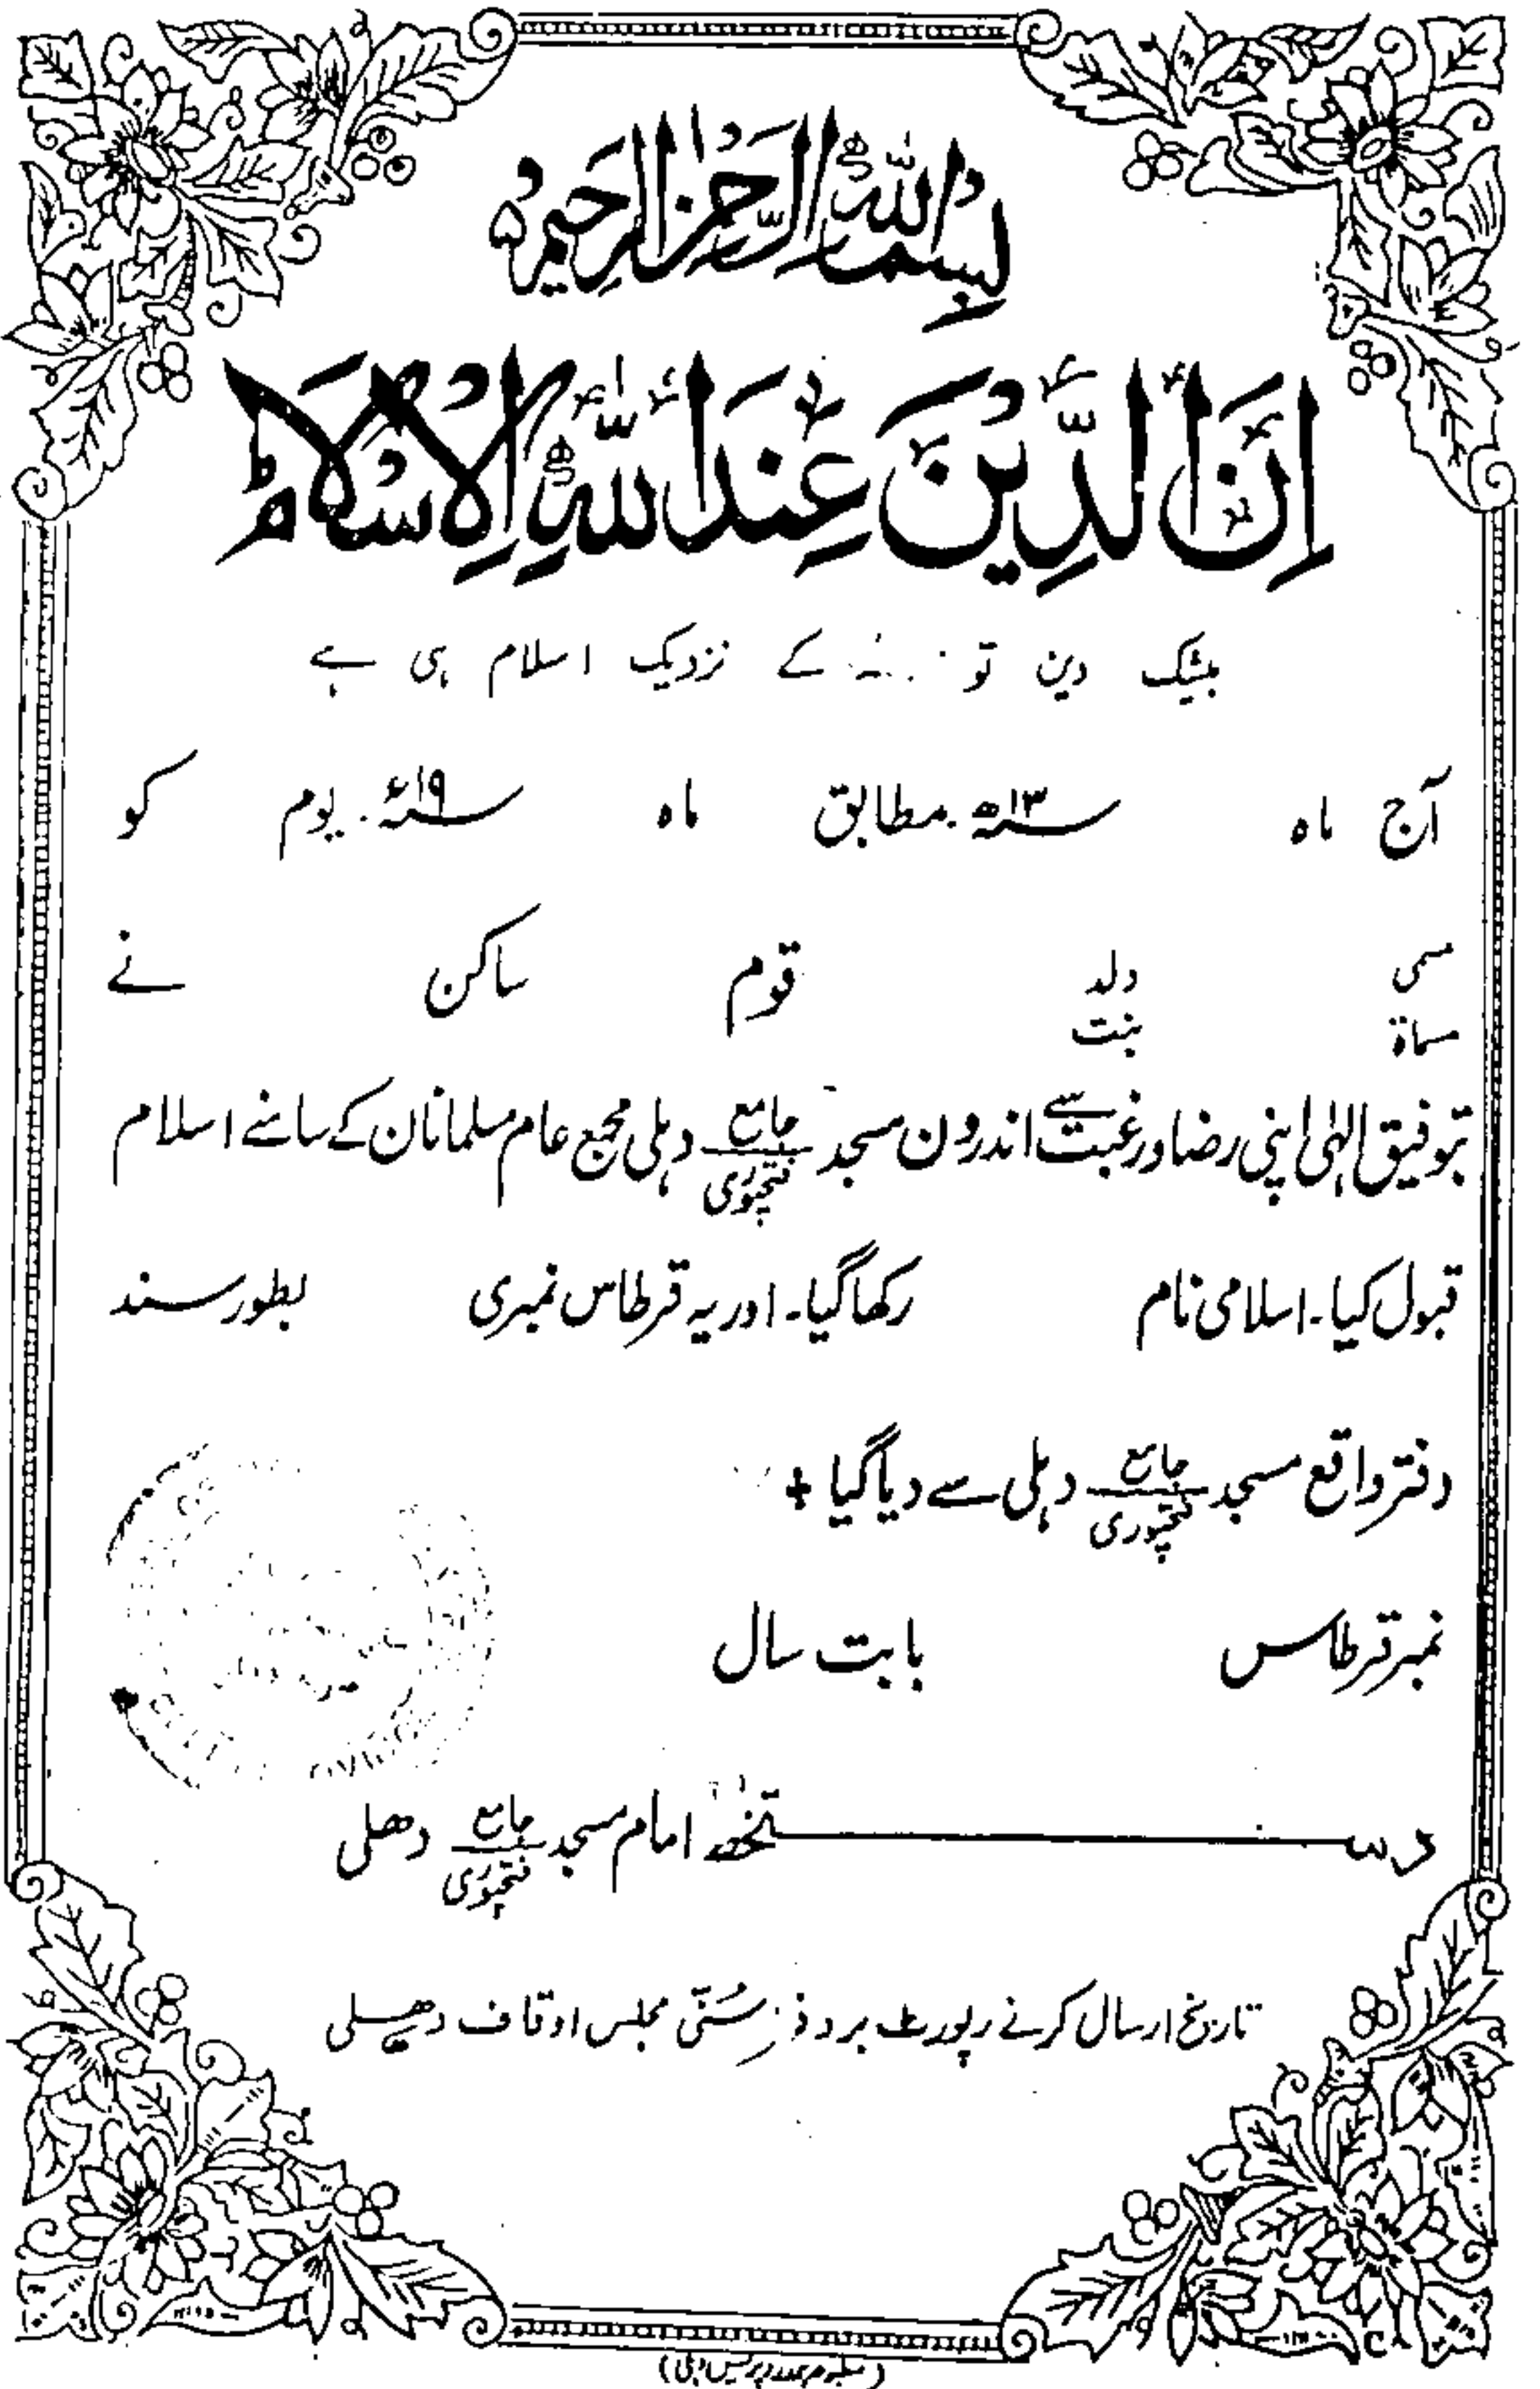 بِسْمِ اللّٰهِ الرَّحْمٰنِ الرَّحِيْمِ ه
اِنَّ الدِّيْنَ عِنْدَ اللّٰهِ الْاِسْلَامُ ط
بیشک دین تو کے نزدیک اسلام ہی ہے
آج ماہ ۱۳ سنہ ھ مطابق ماہ ۱۹ سنہ ء یوم کو
مسمی ولد قوم ساکن نے
مسماۃ بنت
بتوفیق الہٰی اپنی رضا ورغبت سے اندرون مسجد جامع فتحپوری دہلی مجمع عام مسلمانان کے سامنے اسلام
قبول کیا۔ اسلامی نام رکھا گیا۔ اور یہ قرطاس نمبری بطور سند
دفتر واقع مسجد جامع فتحپوری دہلی سے دیا گیا +
نمبر قرطاس بابت سال
دستخط امام مسجد جامع فتحپوری دھلی
تاریخ ارسال کرنے رپورٹ بر دفتر سُنّی مجلس اوقاف دھیلی